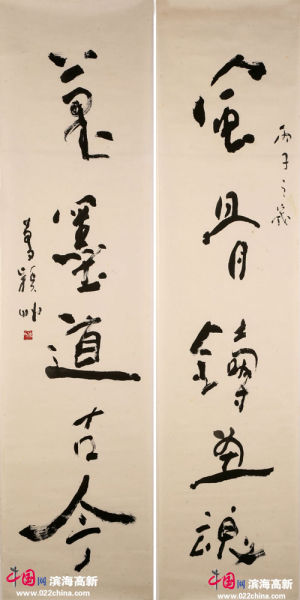 風骨鑄畫魂
丙子之歲
墨道古今
中国网 滨海高新
www.022china.com
中国网 滨海高新
www.022china.com